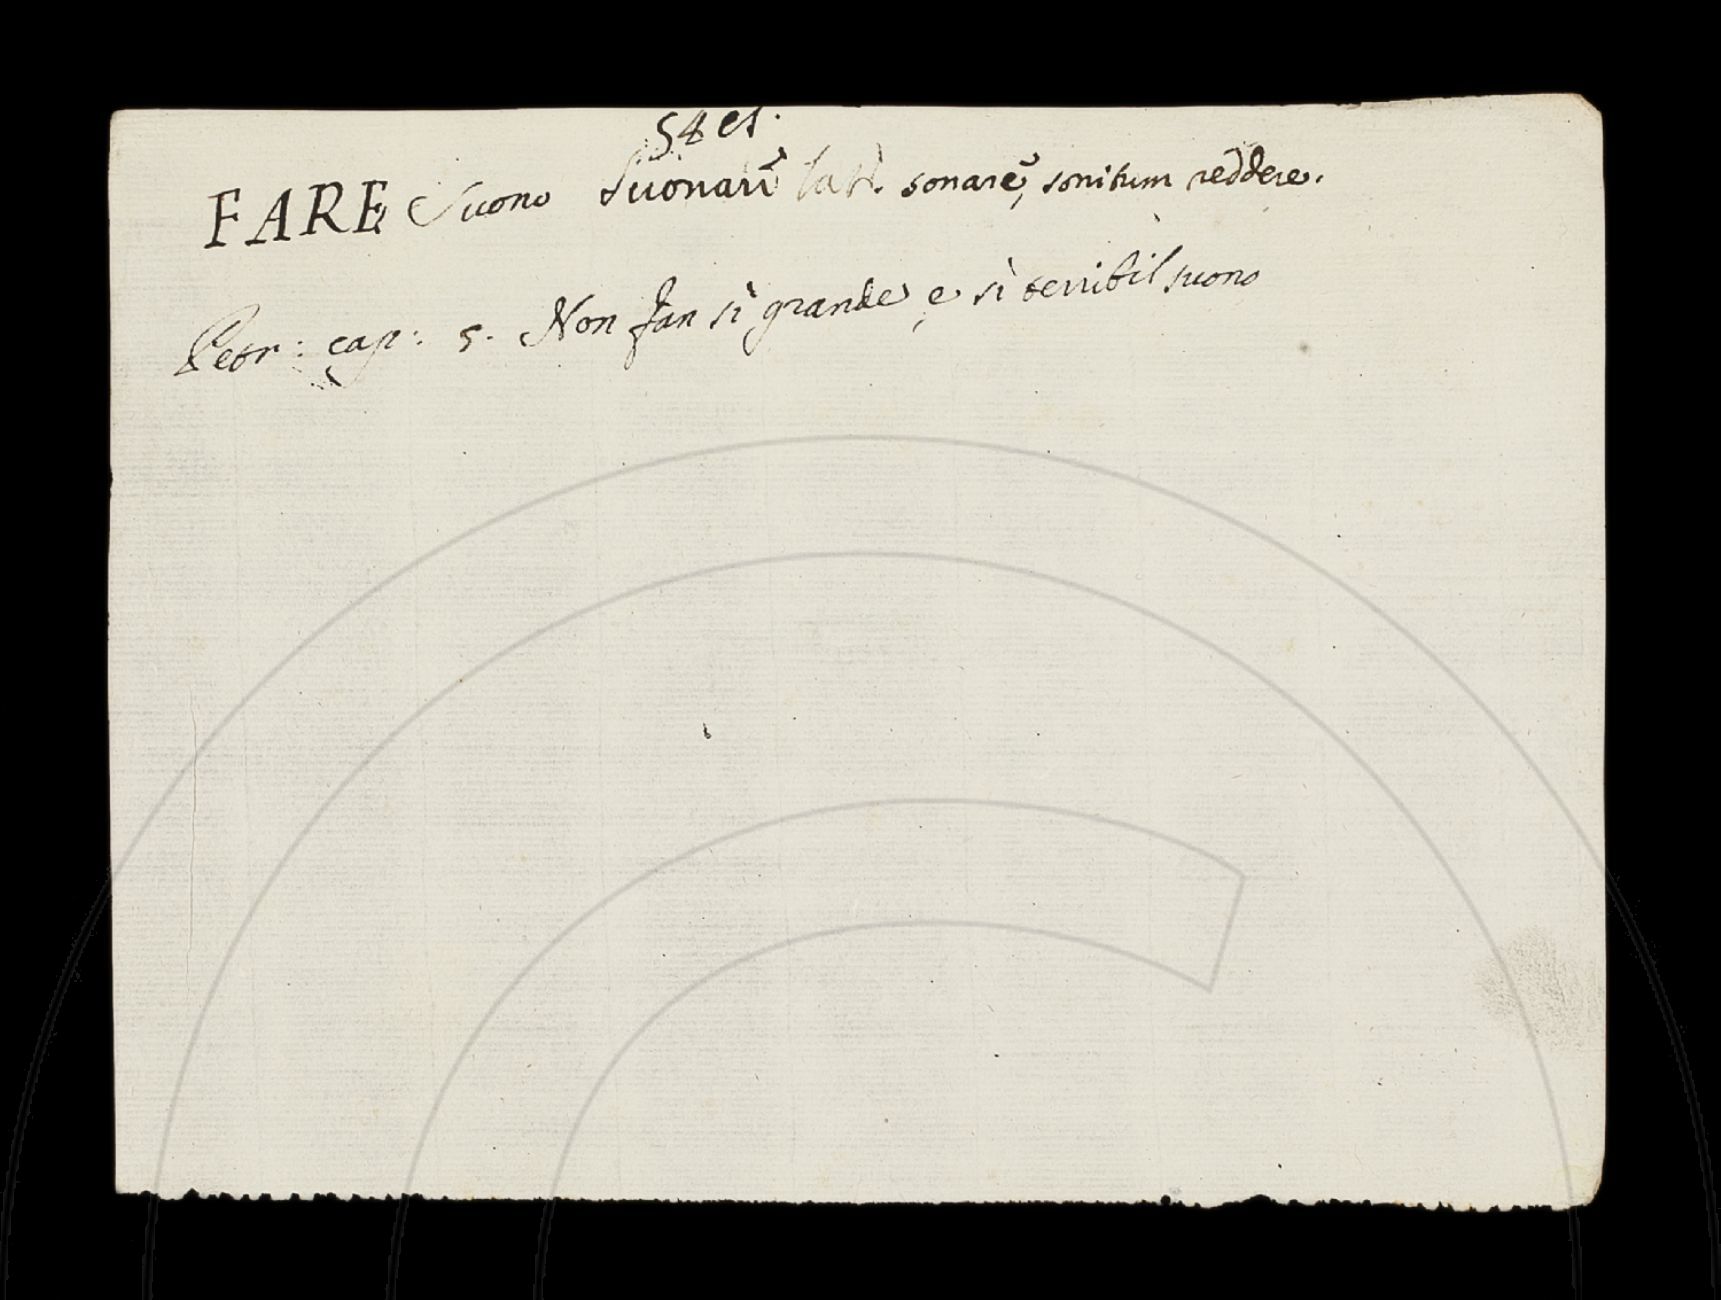 54
FARE Suono Suonare lat. sonare, sonitum reddere.
Petr: cap: 5. Non fan sì grande e sì terribil suono